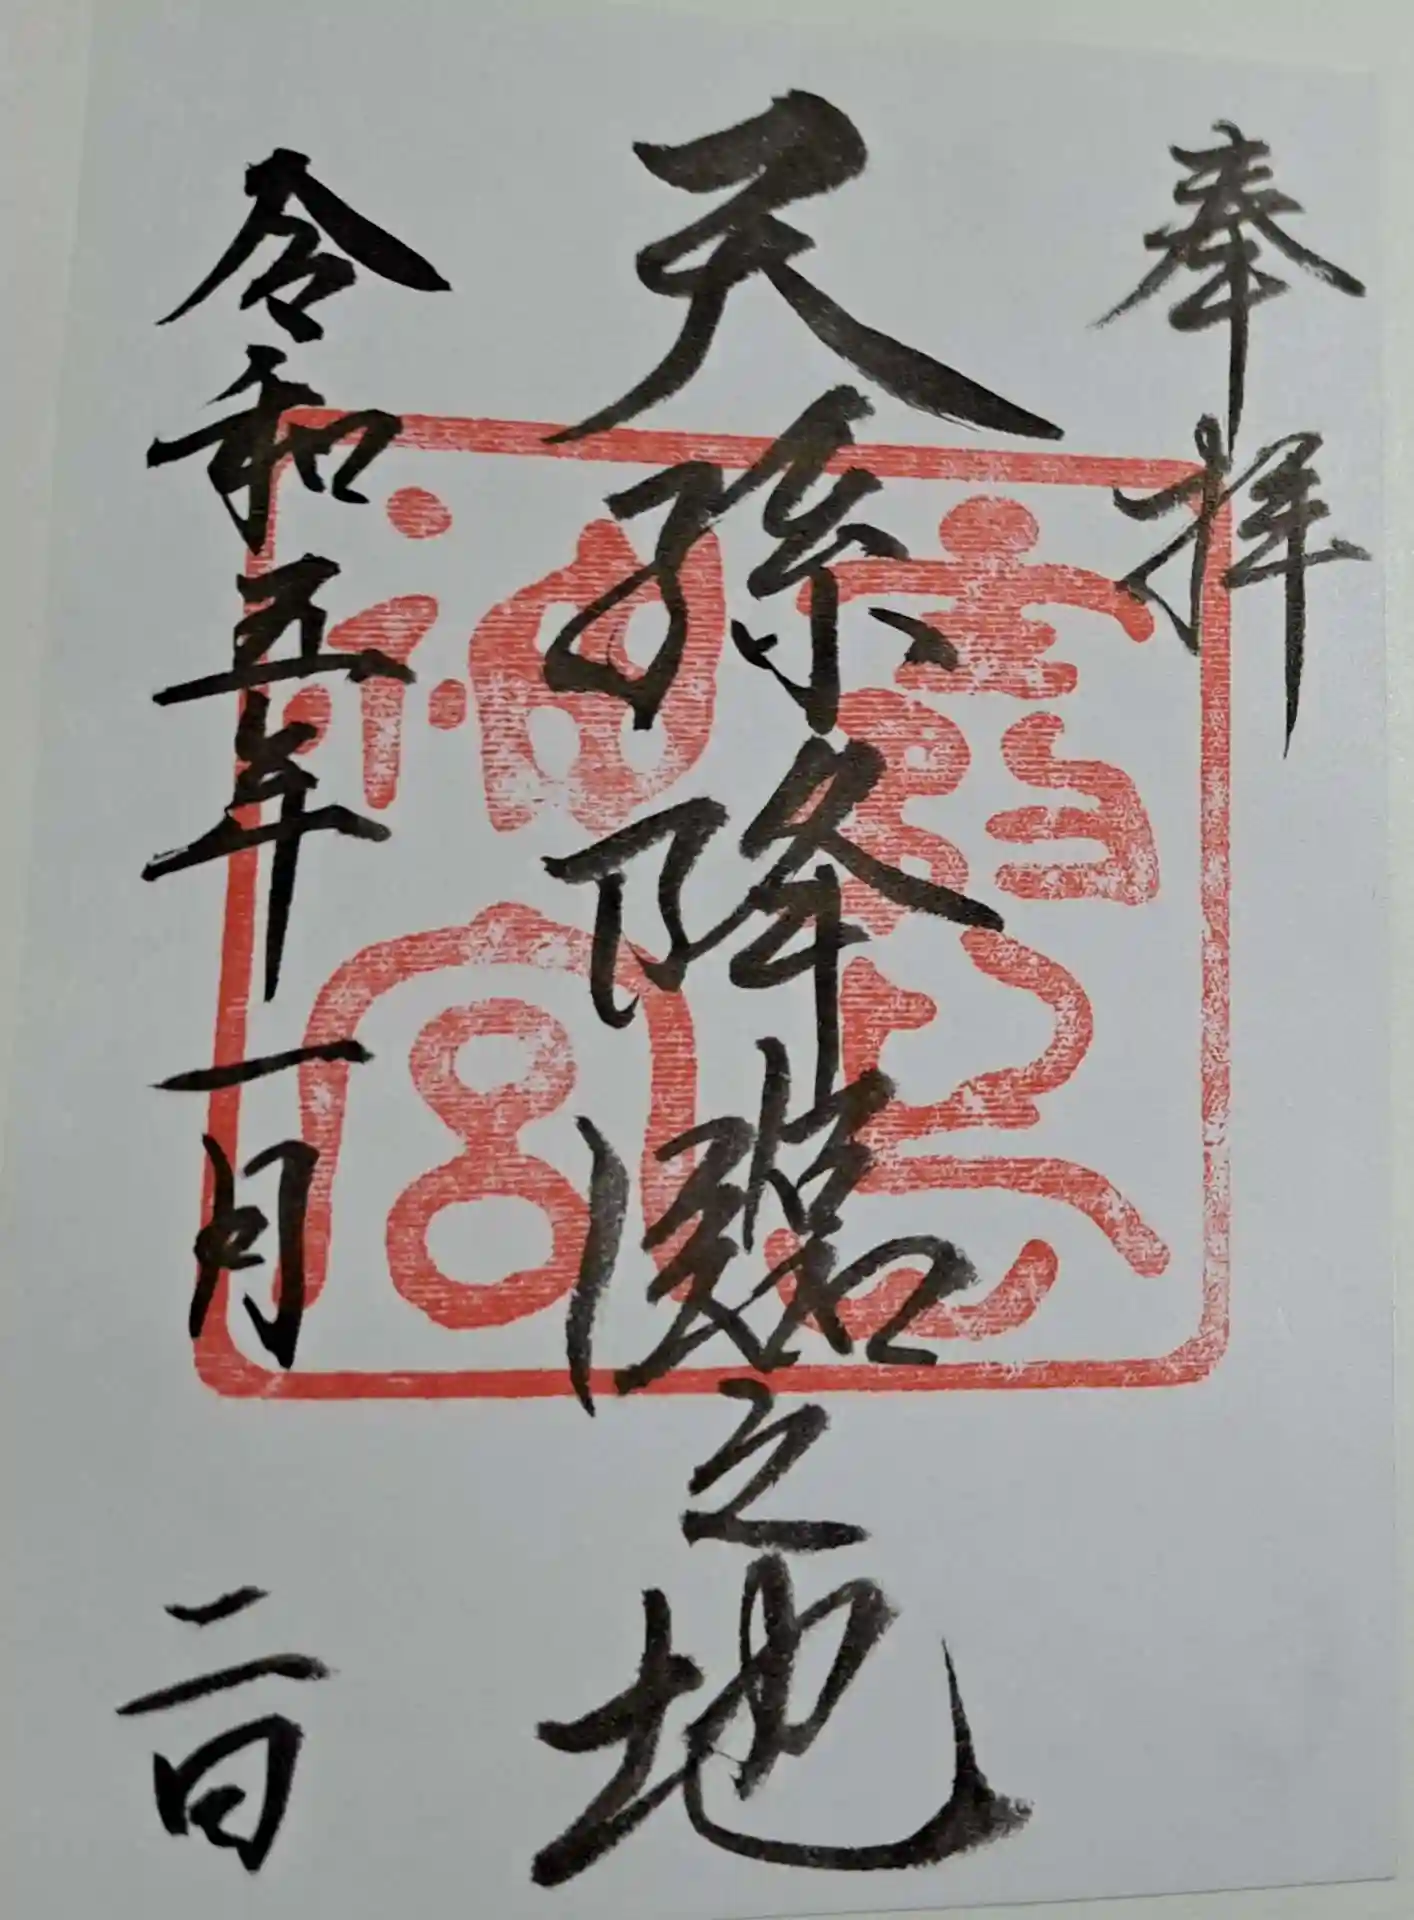 奉拝
天孫降臨之地
霧島神宮
令和五年一月二日